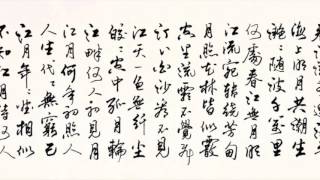 海上明月共潮生
灩〻隨波千萬里
何處春江無月明
江流宛轉繞芳甸
月照花林皆似霰
空里流霜不覺飛
汀上白沙看不見
江天一色無纤尘
皎〻空中孤月輪
江畔何人初見月
江月何年初照人
人生代〻無窮已
江月年〻望相似
不知江月待何人